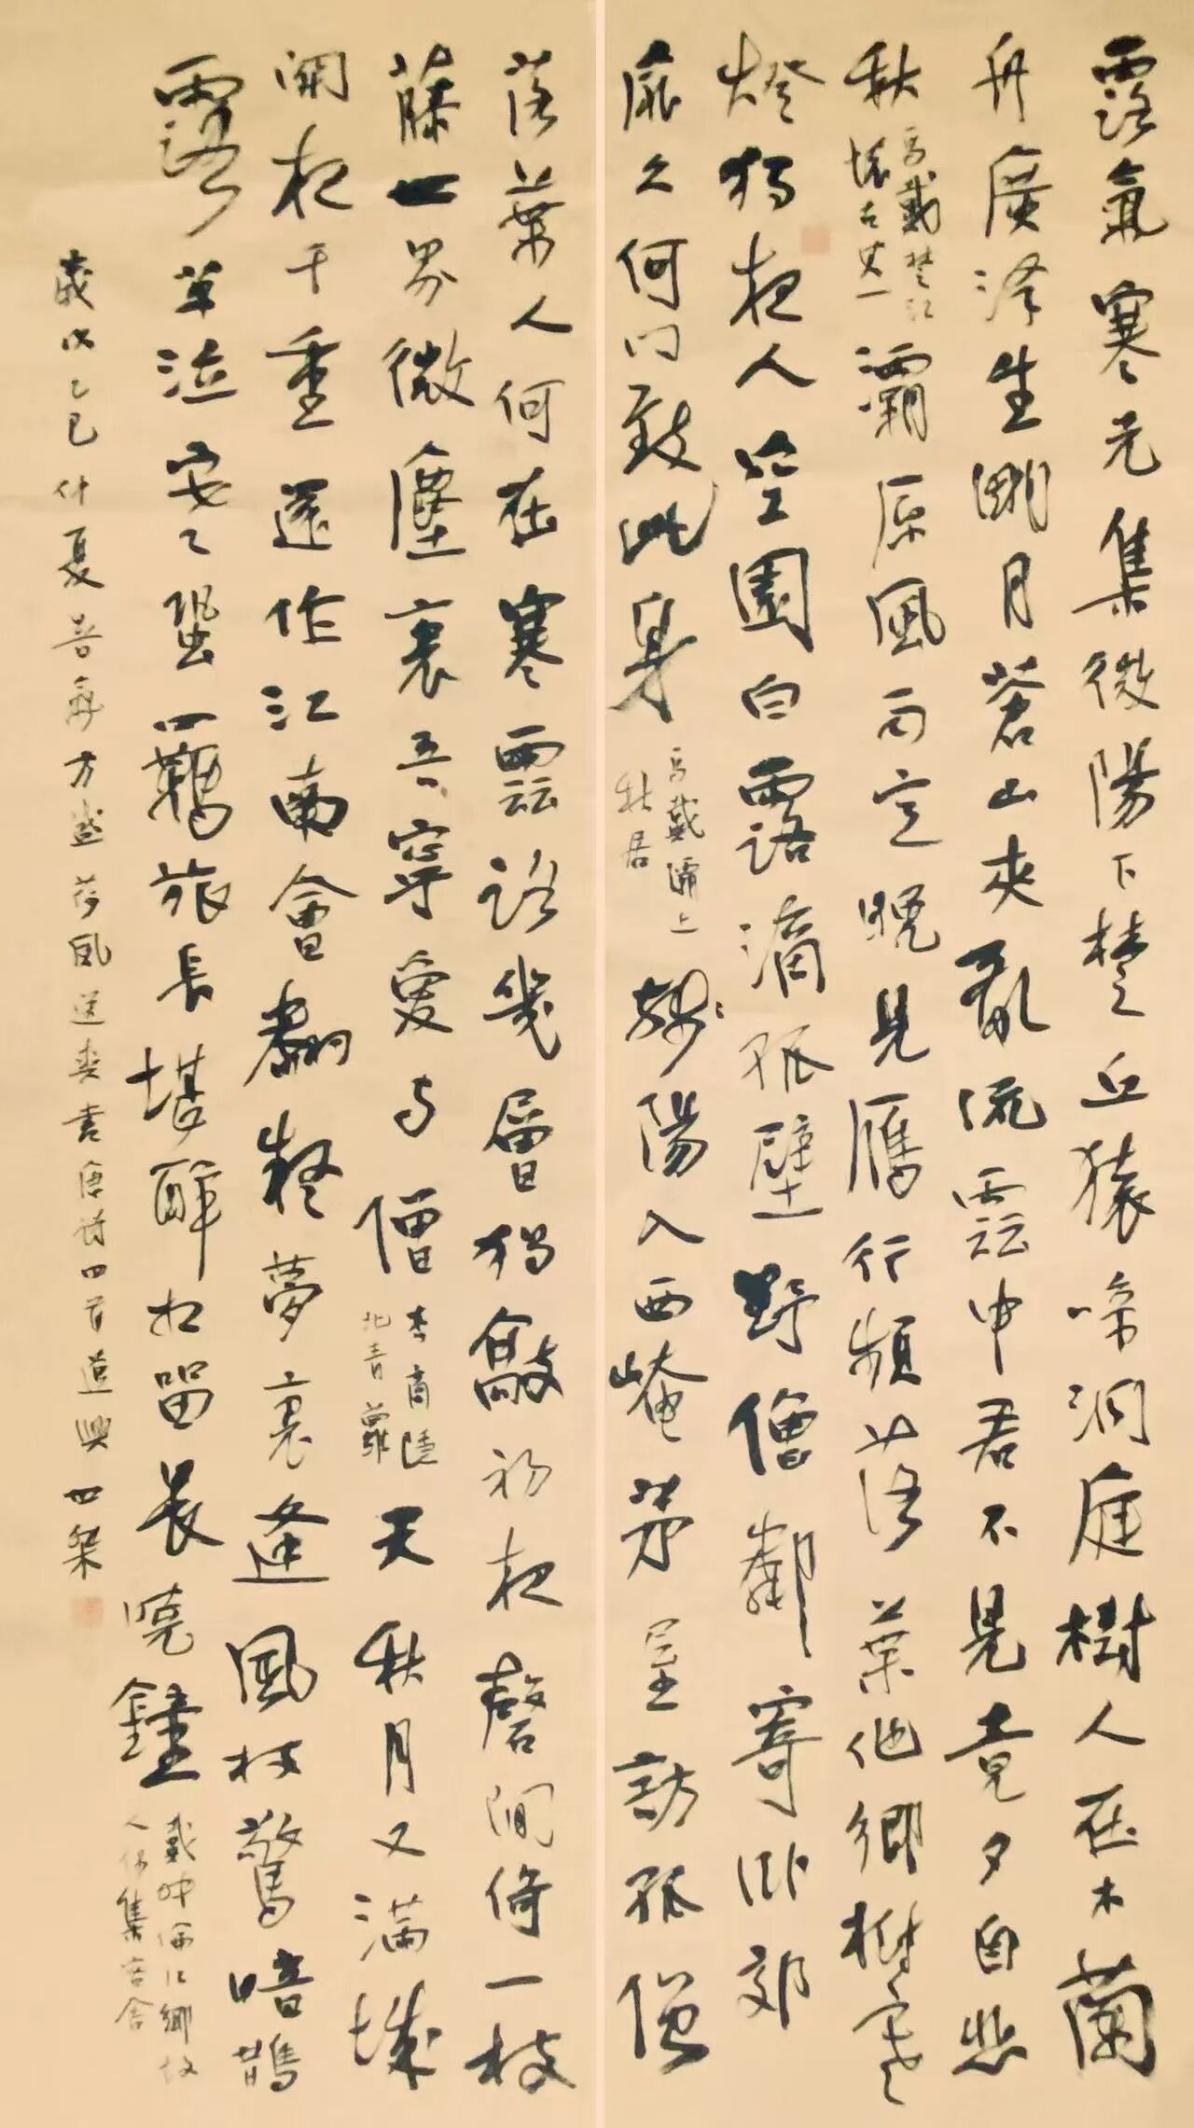 露氣寒光集微陽下楚丘猿啼洞庭樹人在木蘭
舟廣澤生明月蒼山夾亂流雲中君不見竟夕自悲
秋
馬戴楚江
懷古其一
灞原風雨定晚見雁行頻落葉他鄉樹寒
燈獨夜人空園白露滴孤壁野僧鄰寄臥郊
扉久何門致此身
馬戴灞上
秋居
殘陽入西崦茅屋訪孤僧
落葉人何在寒雲路幾層獨敲初夜磬閒倚一枝
藤世界微塵裏吾寧愛與僧
李商隱
北青蘿
天秋月又滿城
闕夜千重還作江南會翻疑夢裏逢風枝驚暗鵲
露草泣寒蛩羈旅長堪醉相留畏曉鐘
戴叔倫江鄉故
人偶集客舍
歲次乙巳仲夏暑氣方盛荷風送爽書唐詩四首遣興世